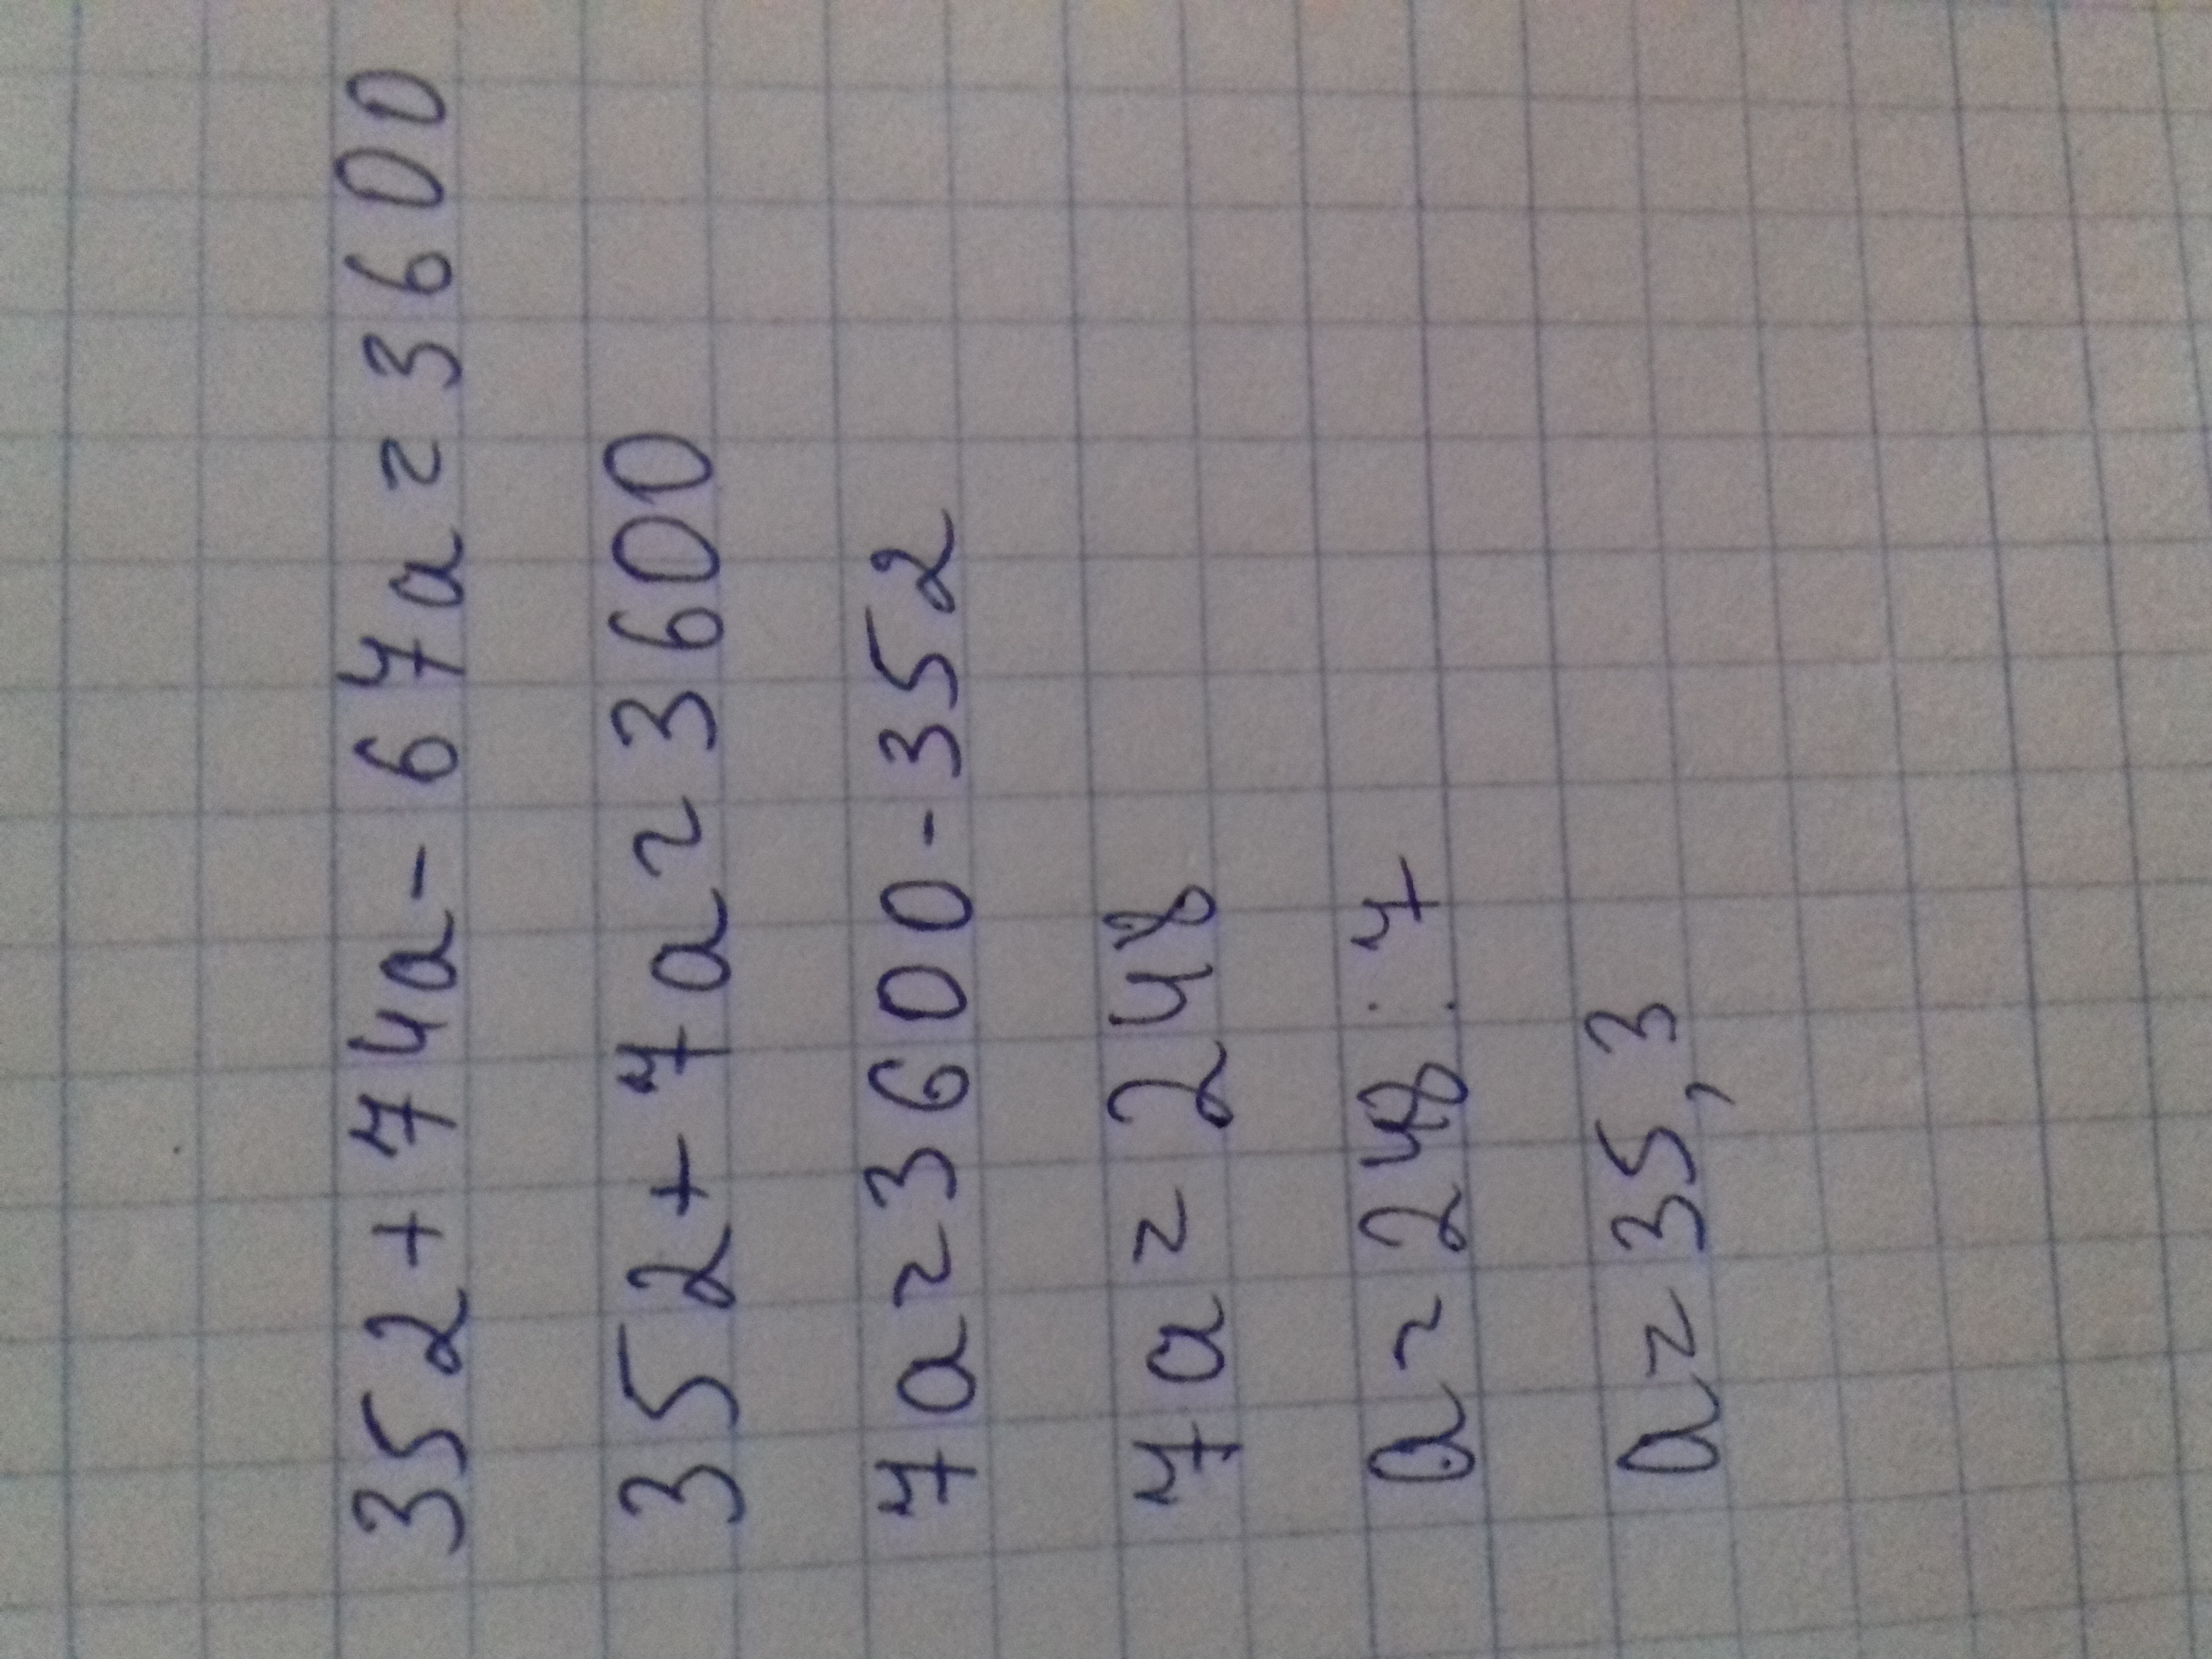 352+74a-67a=3600
352+7a=3600
7a=3600-352
7a=248
a=248:7
a=35,3